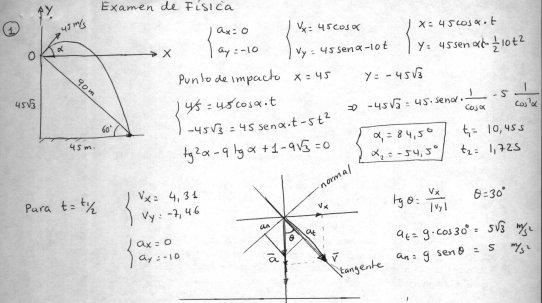 Examen de Física
1
Y
45 m/s
α
O
X
90m
45√3
60°
45m.
ax = 0
ay = -10
Vx = 45cosα
Vy = 45senα-10t
X = 45cosα.t
Y = 45senαt-1/2 10t²
Punto de impacto x = 45 y = -45√3
45 = 45cosα.t
-45√3 = 45 senα.t-5t²
⇒ -45√3 = 45.senα.1/cosα -5 1/cos²α
tg²α-9tgα+1-9√3=0
α₁ = 84,5°
α₂ = -54,5°
t₁ = 10,45s
t₂ = 1,72s
Para t = t₁/2
Vx = 4,31
Vy = -7,46
ax = 0
ay = -10
normal
Vx
an
θ
at
a
V
tangente
tgθ = Vx/|Vy| θ = 30°
at = g.cos30° = 5√3 m/s²
an = g senθ = 5 m/s²